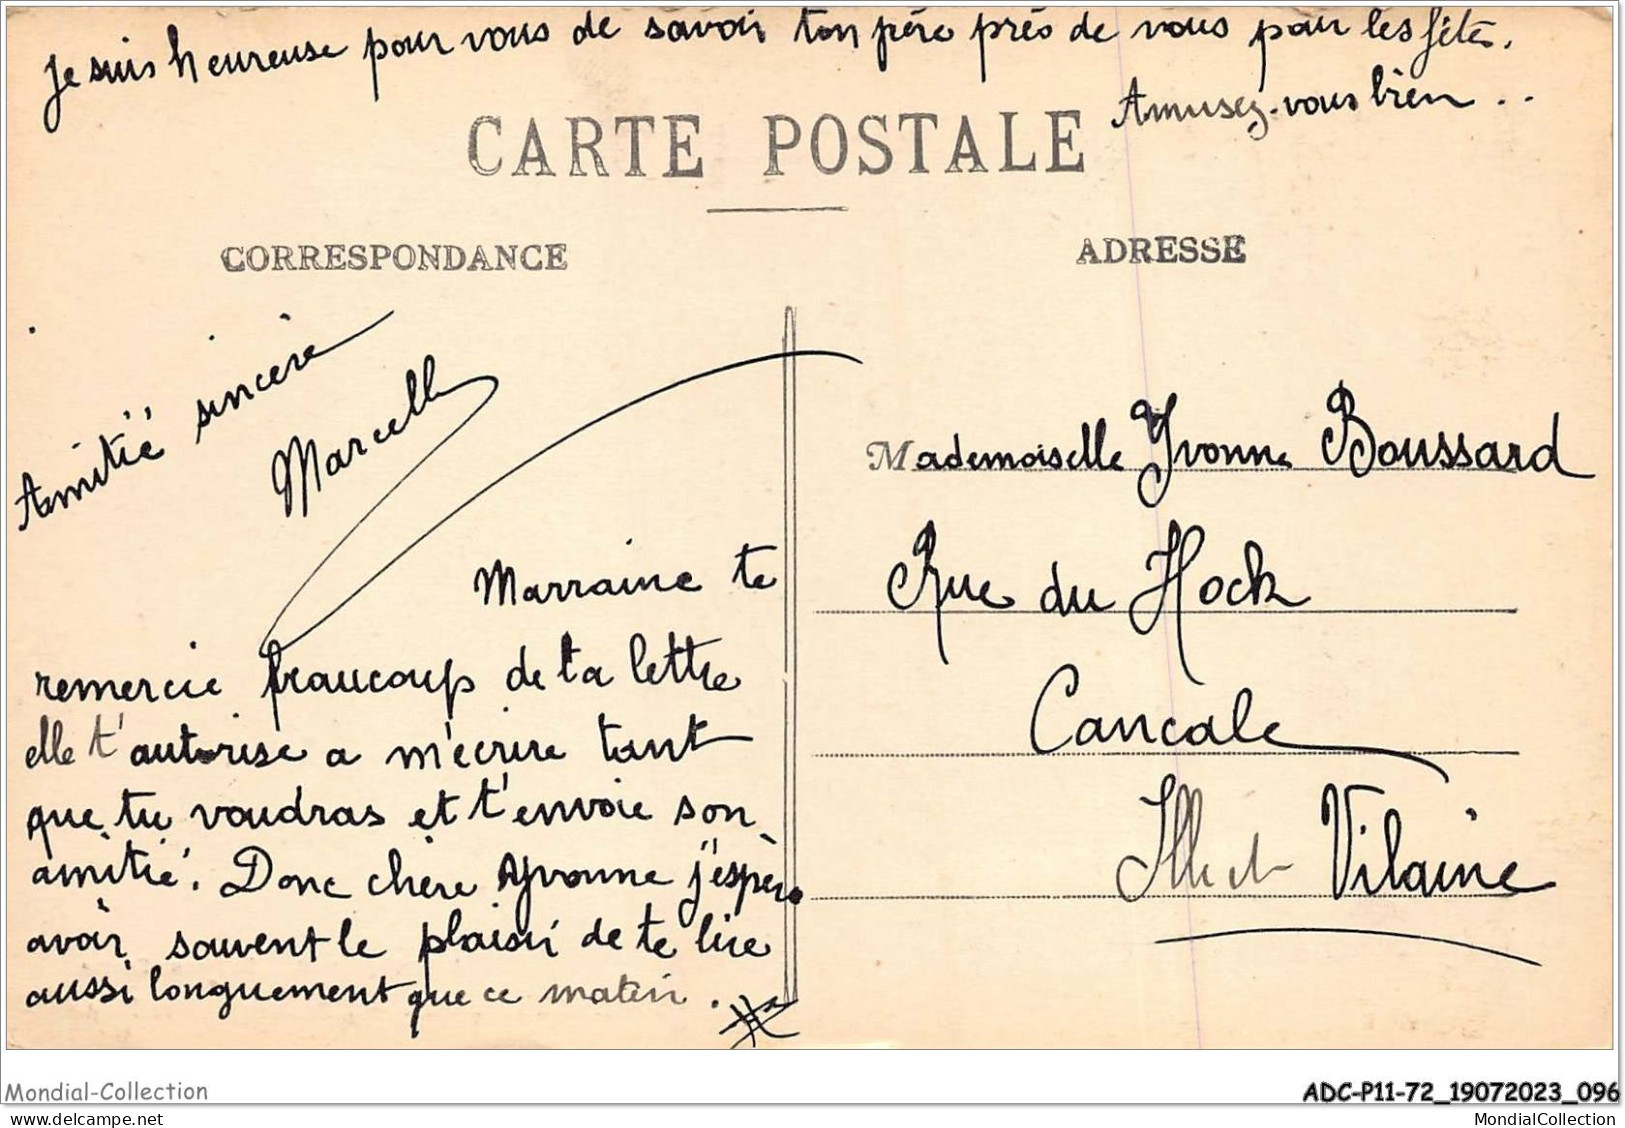 Je suis heureuse pour vous de savoir ton père près de vous pour les fêtes.
Amusez-vous bien ..
CARTE POSTALE
CORRESPONDANCE
ADRESSE
Amitié sincère
Marcelle
Marraine te
remercie beaucoup de ta lettre
elle t'autorise a m'écrire tant
que tu voudras et t'envoie son
amitié. Donc chère Yvonne j'espère
avoir souvent le plaisir de te lire
aussi longuement que ce matin.
Mademoiselle Yvonne Boussard
Rue du Hock
Cancale
Ille et Vilaine
Mondial-Collection
ADC-P11-72_19072023_096
MondialCollection